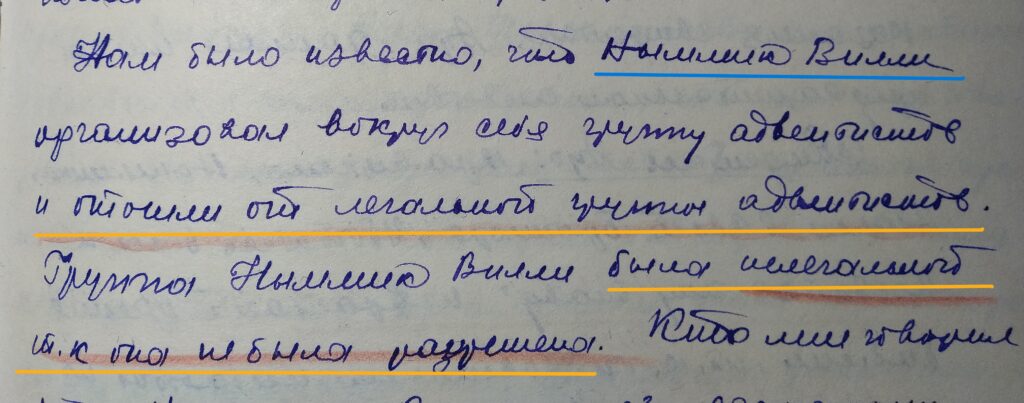 Нам было известно, что Ныммик Вилли
организовал вокруг себя группу адвентистов
и отошли от легальной группы адвентистов.
Группа Ныммик Вилли была нелегальной
т.к она не была разрешена. Кто мне говорил